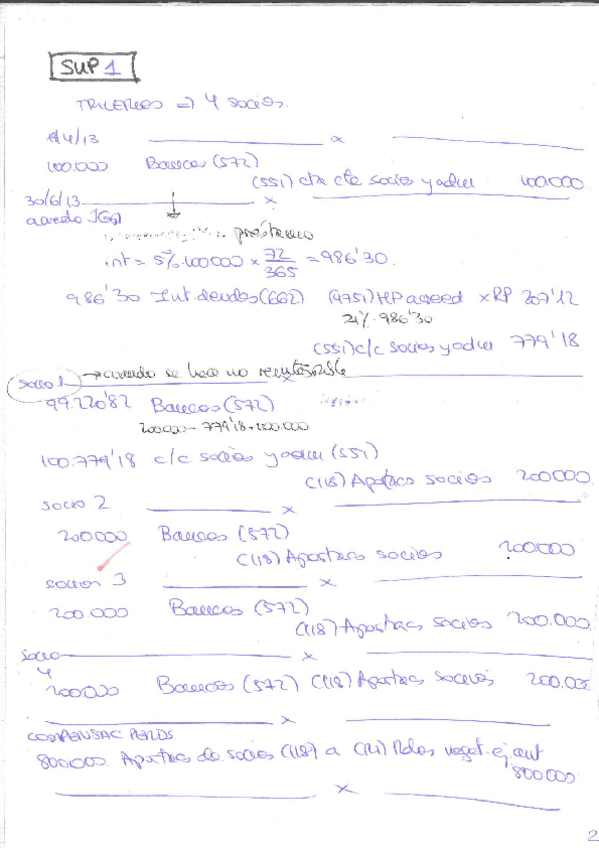 SUP 1
=> 4 socios.
/4/13 x
100.000 Bancos (572)
(551) cta cte socios y adm 100.000
30/6/13 x
acuerdo JGA
préstamo
int = 5% 100.000 x 72/365 = 986'30.
986'30 Int. deudas (662) (4751) HP acreed x RP 207'12
21% 986'30
(551) c/c socios y adm 779'18
socio 1 → cuando se hace no x
99.220'82 Bancos (572)
200.000 - 779'18 - 100.000
100.779'18 c/c socios y adm (551)
(118) Aportac socios 200.000
socio 2 x
200.000 Bancos (572)
(118) Aportac socios 200.000
socio 3 x
200.000 Bancos (572)
(118) Aportac socios 200.000
socio x
4
200.000 Bancos (572) (118) Aportac socios 200.000
x
COMPENSAC PERDS
800.000 Aportac de socios (118) a (121) Rdos negat. ej. ant
800.000
x
2